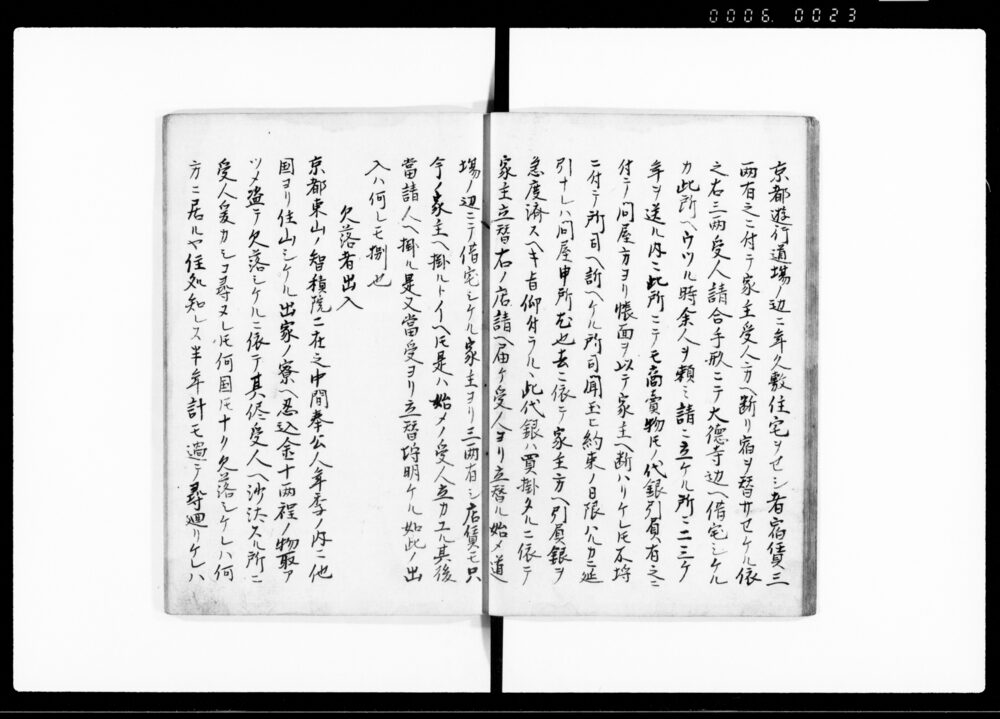 0006.0023
京都遊行道場ノ辺ニ年久敷住宅ヲセシ者宿賃三
両有之ニ付テ家主受人方ヘ断リ宿ヲ替サセケル依
之右三両受人請合手形ニテ大徳寺辺ヘ借宅シケル
カ此所ヘウツル時余人ヲ頼ミ請ニ立ケル所ニ二三ケ
年ヲ送ル内ニ此所ニテモ商賣物ノ代銀引負有之ニ
付テ問屋方ヨリ帳面ヲ以テ家主ヘ断ハリケレ𪜈不埒
ニ付テ所司ヘ訴ヘケル所司聞玉ヒ約束ノ日限ハルカニ延
引ナレハ問屋申所尤也去ニ依テ家主方ヘ引負銀ヲ
急度済スヘキ旨仰付ラル此代銀ハ買掛タルニ依テ
家主立替右ノ店請ヘ届ケ受人ヨリ立替ル始メ道
場ノ辺ニテ借宅シケル家主ヨリ三両有シ店賃モ只
今ノ家主ヘ掛ルトイヘ𪜈是ハ始メノ受人立カエル其後
當請人ヘ掛ル是又當受ヨリ立替埒明ケル如此ノ出
入ハ何レモ捌也
欠落者出入
京都東山ノ智積院ニ在之中間奉公人年季ノ内ニ他
国ヨリ住山シケル出家ノ寮ヘ忍込金十両程ノ物取ア
ツメ盗テ欠落シケルニ依テ其侭受人ヘ沙汰スル所ニ
受人爰カシコ尋ヌレ𪜈何国𪜈ナク欠落シケレハ何
方ニ居ルヤ住処知レス半年計モ過テ尋廻リケレハ